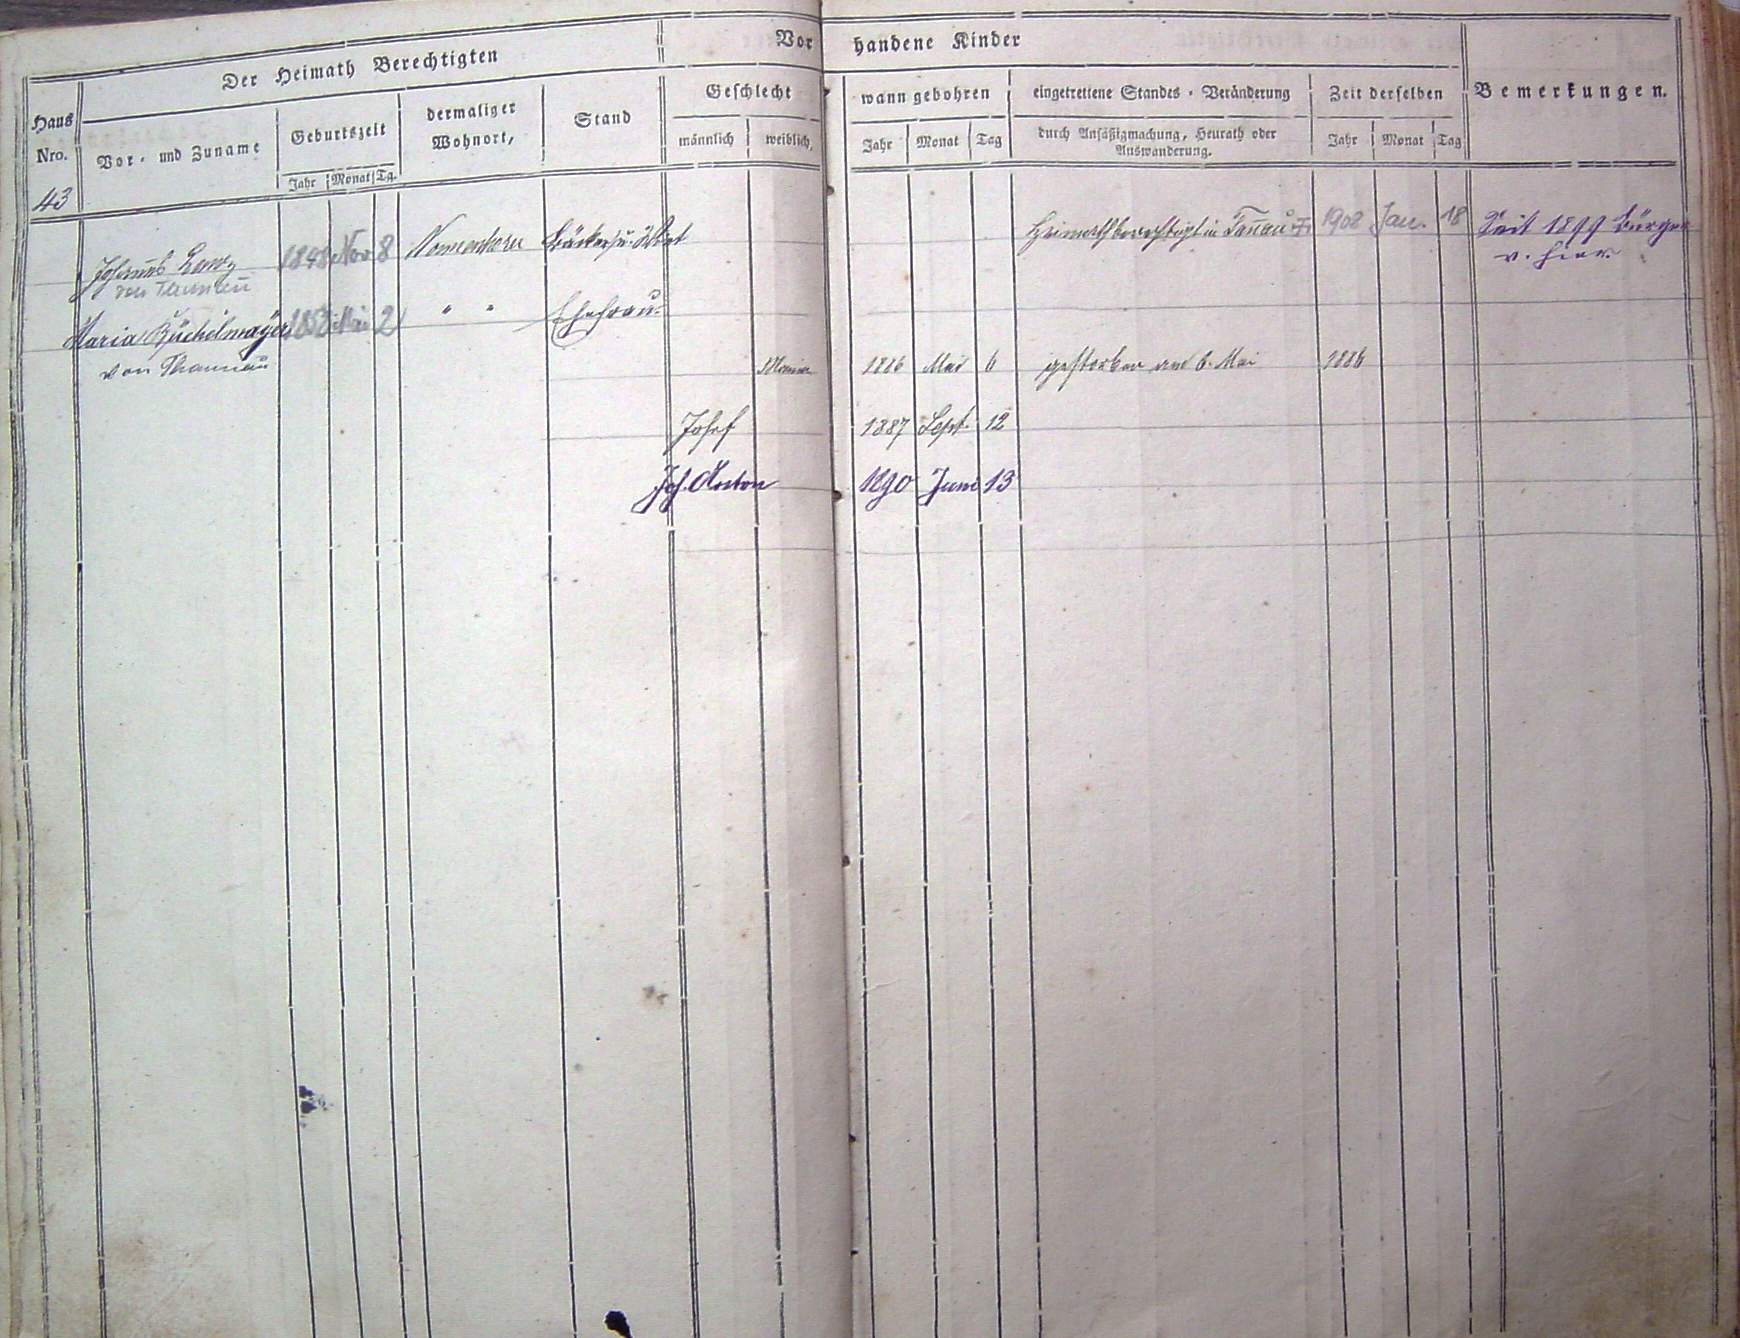 Der Heimath Berechtigten
Vorhandene Kinder
Haus Nro.
Vor- und Zuname
Geburtszeit
Jahr Monat Tg.
dermaliger Wohnort,
Stand
Geschlecht
männlich weiblich,
wann gebohren
Jahr Monat Tag
eingetrettene Standes-Veränderung
durch Ansäßigmachung, Heurath oder
Auswanderung.
Zeit derselben
Jahr Monat Tag
Bemerkungen.
43
Johannes 1848 Nov 8 Nonnenhorn Bäcker u. Wirt Heimathberechtigt in Tannau † 1908 Jan. 18 Seit 1899 Bürger
von Thannau v. hier.
Maria Büchelmayer Mai 2 " " Ehefrau
von Thannau
1886 Mai 6 gestorben am 6. Mai 1886
Josef 1887 Sept. 12
Jos. Anton 1890 Juni 13